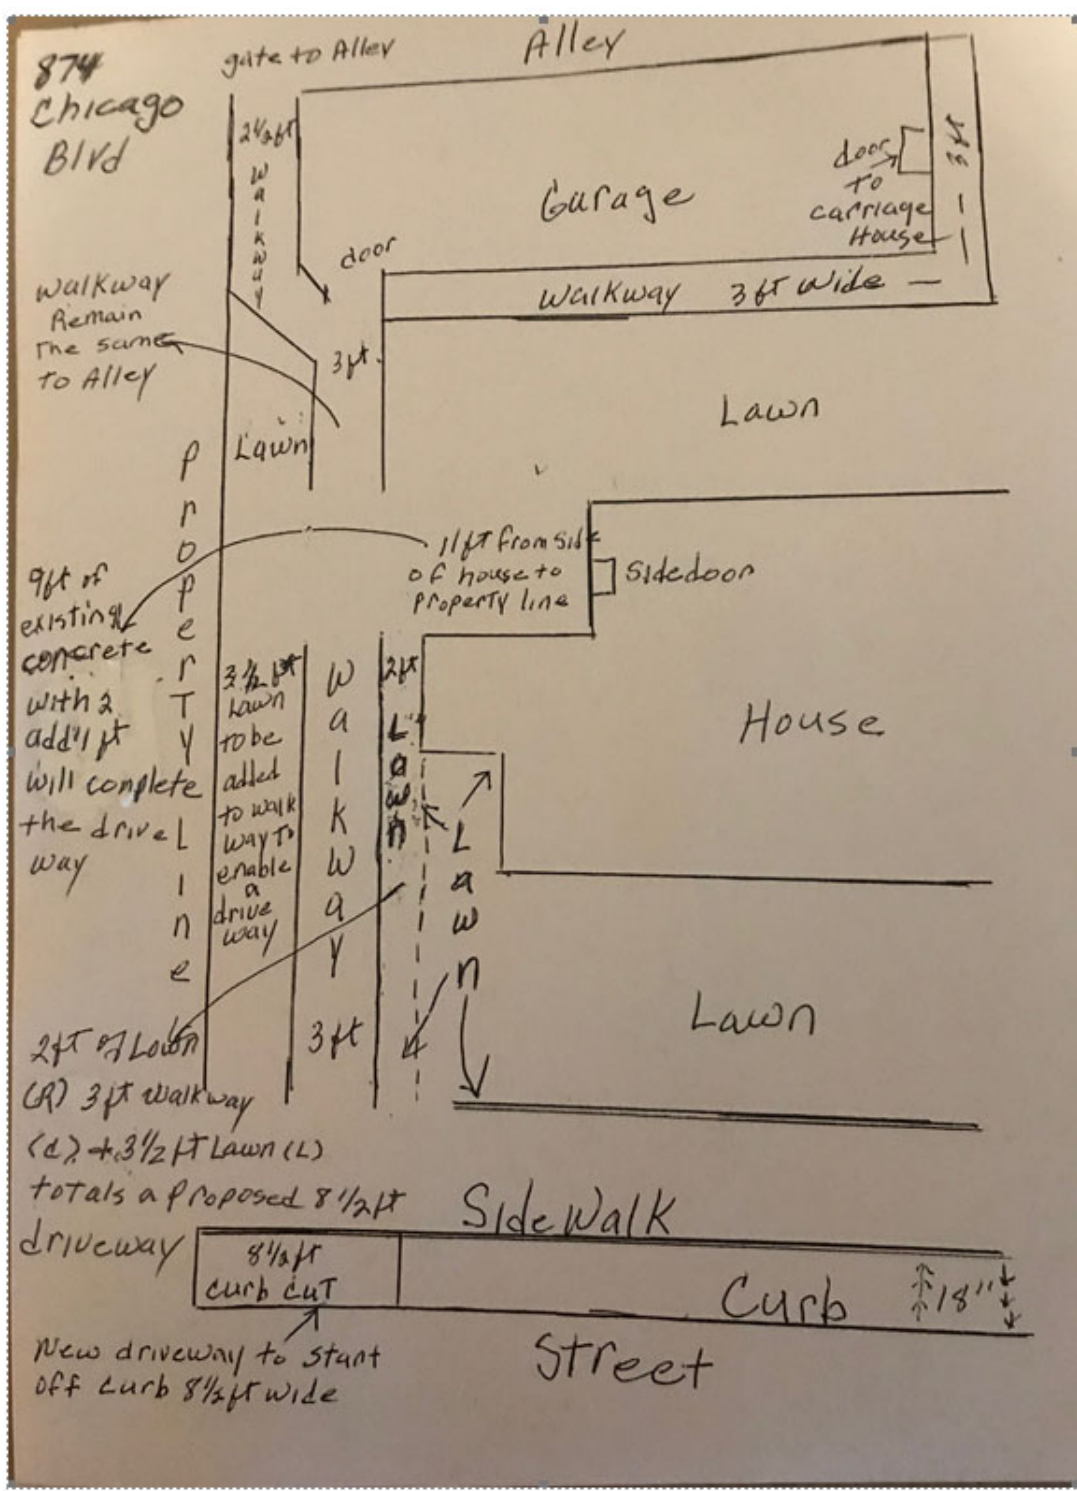 874
Chicago
Blvd
gate to Alley
Alley
2 1/2 ft
Walkway
door
Garage
door
to
carriage
House
3 ft
Walkway 3 ft wide
walkway
Remain
The same
to Alley
3 ft
Lawn
Lawn
Property Line
11 ft from side
of house to
property line
Sidedoor
9 ft of
existing
concrete
with 2
add'l ft
will complete
the drive
way
3 1/2 ft
Lawn
to be
added
to walk
way to
enable
a
drive
way
Walkway
3 ft
2 ft
Lawn
Lawn
House
Lawn
2 ft of Lawn
(R) 3 ft walkway
(c) + 3 1/2 ft Lawn (L)
totals a proposed 8 1/2 ft
driveway
SideWalk
8 1/2 ft
curb cut
Curb
18"
New driveway to start
off curb 8 1/2 ft wide
Street